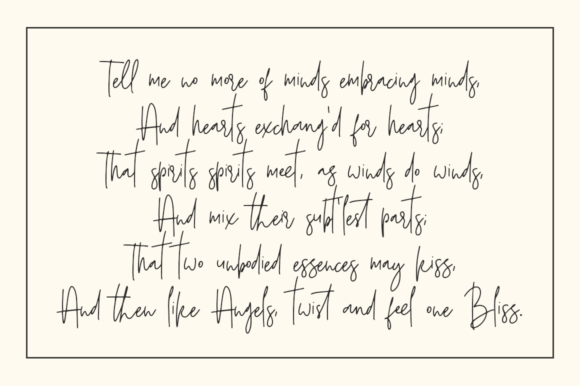 Tell me no more of minds embracing minds,
And hearts exchang'd for hearts;
That spirits spirits meet, as winds do winds,
And mix their subt'lest parts;
That two unbodied essences may kiss,
And then like Angels, twist and feel one Bliss.